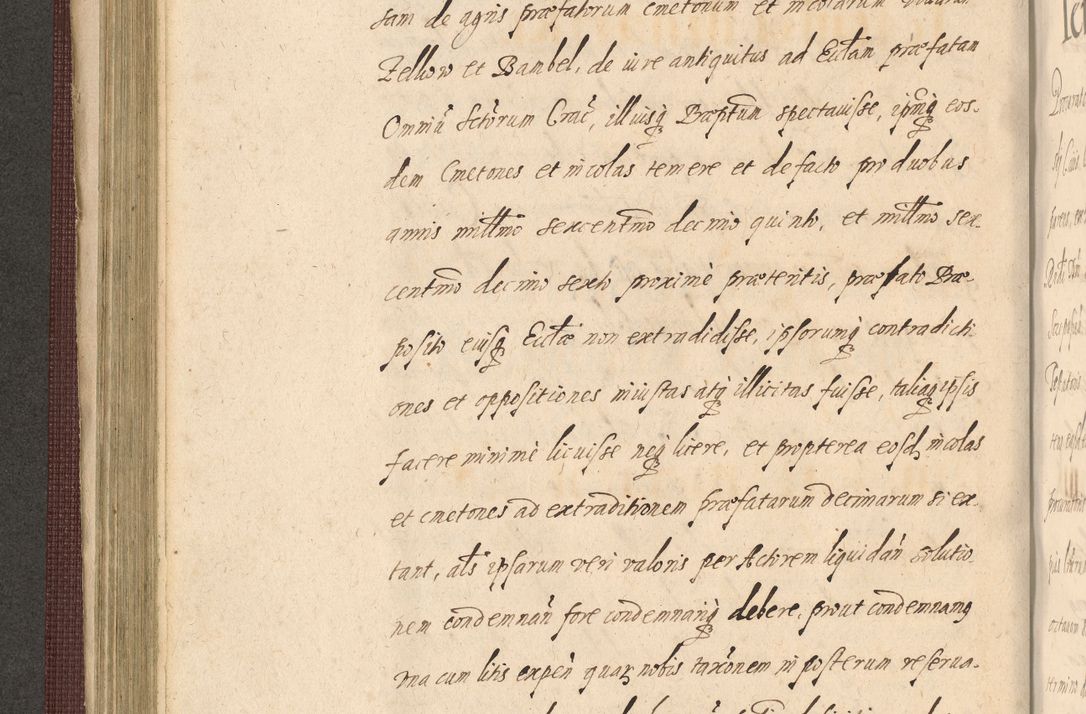 sam de agris præfatorum cmetonum et incolarum
Zellow et Bambel, de iure antiquitus ad Eccłam præfatam
Omniũ Sctõrum Crac̃, illiusq Præptum spectavisse, ipmq eos-
dem Cmetones et incolas temere et defacto pro duobus
annis milłmo sexcentmo decimo quinto, et milłmo sex-
centmo decimo sexto proximè præteritis, præfato Præ-
posito eiusq Eccłæ non extradidisse, ipsorumq contradicti-
ones et oppositiones iniustas atq illicitas fuisse, taliaq ipsis
facere minimè licuisse neq licere, et propterea eosd incolas
et cmetones ad extraditionem præfatarum decimarum si ex-
tant, als ipsarum veri valoris per Actorem liquidañ solutio-
nem condemnañ fore condemnariq debere, prout condemnamq
una cum litis expeñ quar nobis taxõnem in posterum reserva-